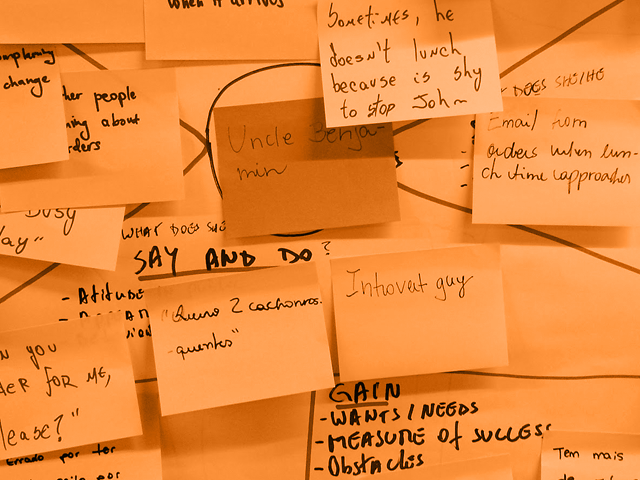 when it arrives
Sometimes, he
doesn't lunch
because is shy
to stop John
change
her people
about
Uncle Benja-
min
DOES SHE/HE
Email from
orders when lun-
ch time approaches
Busy
WHAT DOES SHE
SAY AND DO?
- Atitude
"Quero 2 cachorros.
-quentes"
Introvert guy
N you
FOR ME,
lease?"
errado por ter
por
GAIN
- WANTS / NEEDS
- MEASURE OF SUCCESS
- Obstacles
Tem mais